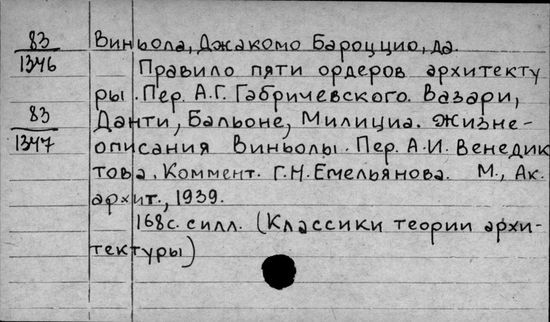 83
1346
Виньола, Джакомо Бароццио, да.
Правило пяти ордеров архитекту
ры. Пер. А.Г. Габричевского. Вазари,
83
1347
Данти, Бальоне, Милициа. Жизне-
описания Виньолы. Пер. А.И. Венедик
това. Коммент. Г.Н. Емельянова. М., Ак.
архит., 1939.
168с. силл. (Классики теории архи-
тектуры)